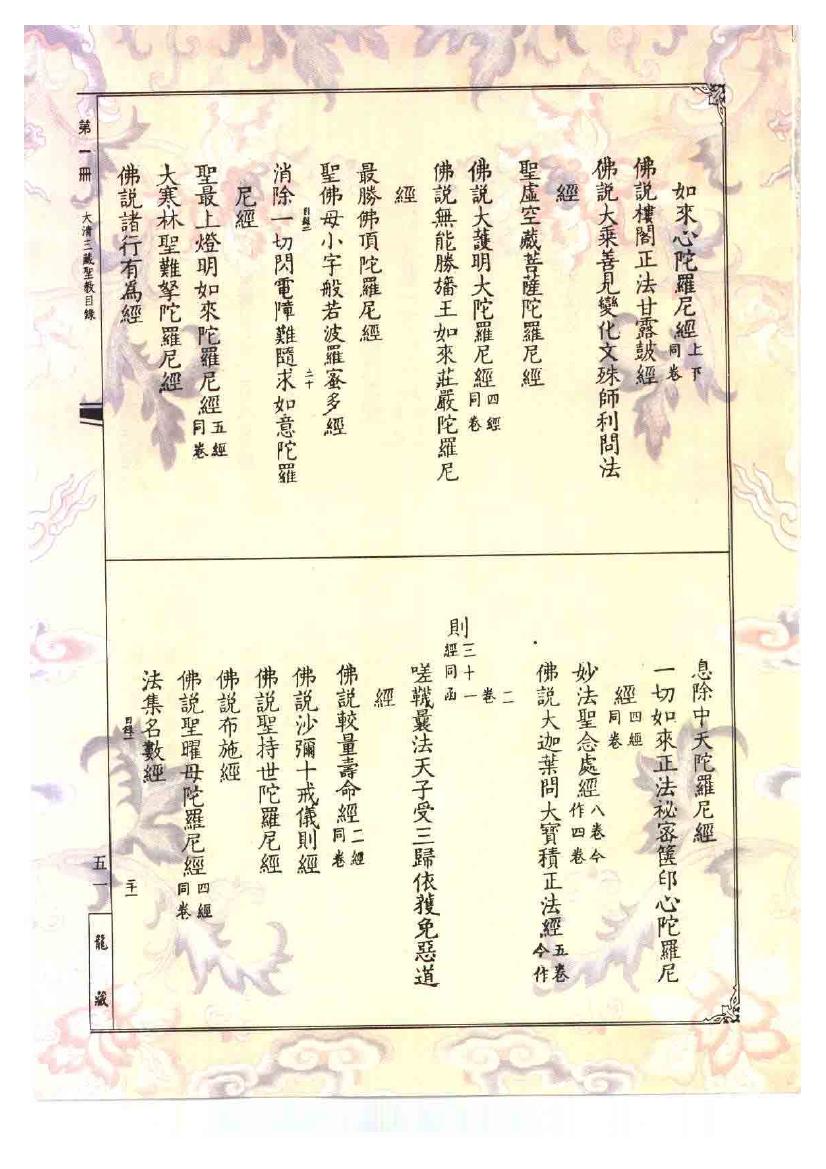 如來心陀羅尼經上下同卷
佛說樓閣正法甘露鼓經
佛說大乘善見變化文殊師利問法
經
聖虛空藏菩薩陀羅尼經
佛說大護明大陀羅尼經四經同卷
佛說無能勝旛王如來莊嚴陀羅尼
經
最勝佛頂陀羅尼經
聖佛母小字般若波羅蜜多經
目錄二
二十
消除一切閃電障難隨求如意陀羅
尼經
聖最上燈明如來陀羅尼經五經同卷
大寒林聖難拏陀羅尼經
佛說諸行有為經
息除中夭陀羅尼經
一切如來正法祕密篋印心陀羅尼
經四經同卷
妙法聖念處經八卷今作四卷
佛說大迦葉問大寶積正法經五卷今作
二卷
則三十一經同函
嗟韈曩法天子受三歸依獲免惡道
經
佛說較量壽命經二經同卷
佛說沙彌十戒儀則經
佛說聖持世陀羅尼經
佛說布施經
佛說聖曜母陀羅尼經四經同卷
法集名數經
目錄二
二十一
第一冊
大清三藏聖教目錄
五一
龍藏